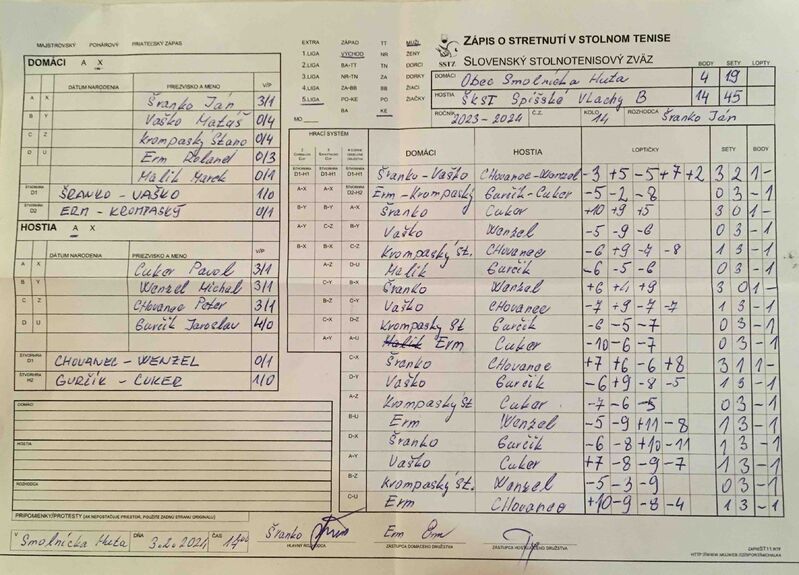 MAJSTROVSKÝ POHÁROVÝ PRIATEĽSKÝ ZÁPAS
DOMÁCI A X
DÁTUM NARODENIA PRIEZVISKO A MENO V/P
A X Šranko Ján 3/1
B Y Vaško Matáš 0/4
C Z Krompaský Stano 0/4
D U Erm Roland 0/3
Malik Marek 0/1
ŠTVORHRA D1 ŠRANKO - VAŠKO 1/0
ŠTVORHRA D2 ERM - KROMPASKÝ 0/1
HOSTIA A X
DÁTUM NARODENIA PRIEZVISKO A MENO V/P
A X Cuker Pavol 3/1
B Y Wenzel Michal 3/1
C Z CHovanec Peter 3/1
D U Gurčik Jaroslav 4/0
ŠTVORHRA D1 CHOVANEC - WENZEL 0/1
ŠTVORHRA H2 GURČIK - CUKER 1/0
DOMÁCI
HOSTIA
ROZHODCA
PRIPOMIENKY/PROTESTY (AK NEPOSTAČUJE PRIESTOR, POUŽITE ZADNÚ STRANU ORIGINÁLU)
V Smolnícka Huta DŇA 3.2.2024 ČAS 17:00
EXTRA ZÁPAD TT MUŽI
1.LIGA VÝCHOD NR ŽENY
2.LIGA BA-TT TN DORCI
3.LIGA NR-TN ZA DORKY
4.LIGA ZA-BB BB ŽIACI
5.LIGA PO-KE PO ŽIAČKY
MO BA KE
SSTZ
ZÁPIS O STRETNUTÍ V STOLNOM TENISE
SLOVENSKÝ STOLNOTENISOVÝ ZVÄZ
BODY SETY LOPTY
DOMÁCI Obec Smolnícka Huta 4 19
HOSTIA ŠKST Spišské Vlachy B 14 45
ROČNÍK 2023-2024 Č.Z. KOLO 14 ROZHODCA Šranko Ján
HRACÍ SYSTÉM
DOMÁCI HOSTIA LOPTIČKY SETY BODY
D1-H1 D1-H1 D1-H1 Šranko-Vaško CHovanec-Wenzel -3 +5 -5 +7 +2 3 2 1 -
A-X A-X D2-H2 Erm-Krompaský Gurčik-Cuker -5 -2 -8 0 3 - 1
B-Y B-Y A-X Šranko Cuker +10 +9 +5 3 0 1 -
A-Y C-Z B-Y Vaško Wenzel -5 -9 -6 0 3 - 1
B-X B-X C-Z Krompaský St. CHovanec -6 +9 -7 -8 1 3 - 1
A-Z D-U Malik Gurčik -6 -5 -6 0 3 - 1
C-Y B-X Šranko Wenzel +6 +4 +9 3 0 1 -
B-Z C-Y Vaško CHovanec -7 +9 -7 -7 1 3 - 1
C-X D-Z Krompaský St Gurčik -6 -5 -7 0 3 - 1
A-Y A-U Malik Erm Cuker -10 -6 -7 0 3 - 1
C-X Šranko CHovanec +7 +6 -6 +8 3 1 1 -
D-Y Vaško Gurčik -6 +9 -8 -5 1 3 - 1
A-Z Krompaský St. Cuker -7 -6 -5 0 3 - 1
B-U Erm Wenzel -5 -9 +11 -8 1 3 - 1
D-X Šranko Gurčik -6 -8 +10 -11 1 3 - 1
A-Y Vaško Cuker +7 -8 -9 -7 1 3 - 1
B-Z Krompaský St. Wenzel -5 -3 -9 0 3 - 1
C-U Erm CHovanec +10 -9 -8 -4 1 3 - 1
Šranko
HLAVNÝ ROZHODCA
Erm Erm
ZÁSTUPCA DOMÁCEHO DRUŽSTVA
ZÁSTUPCA HOSŤUJÚCEHO DRUŽSTVA
ZAPISST11.RTF